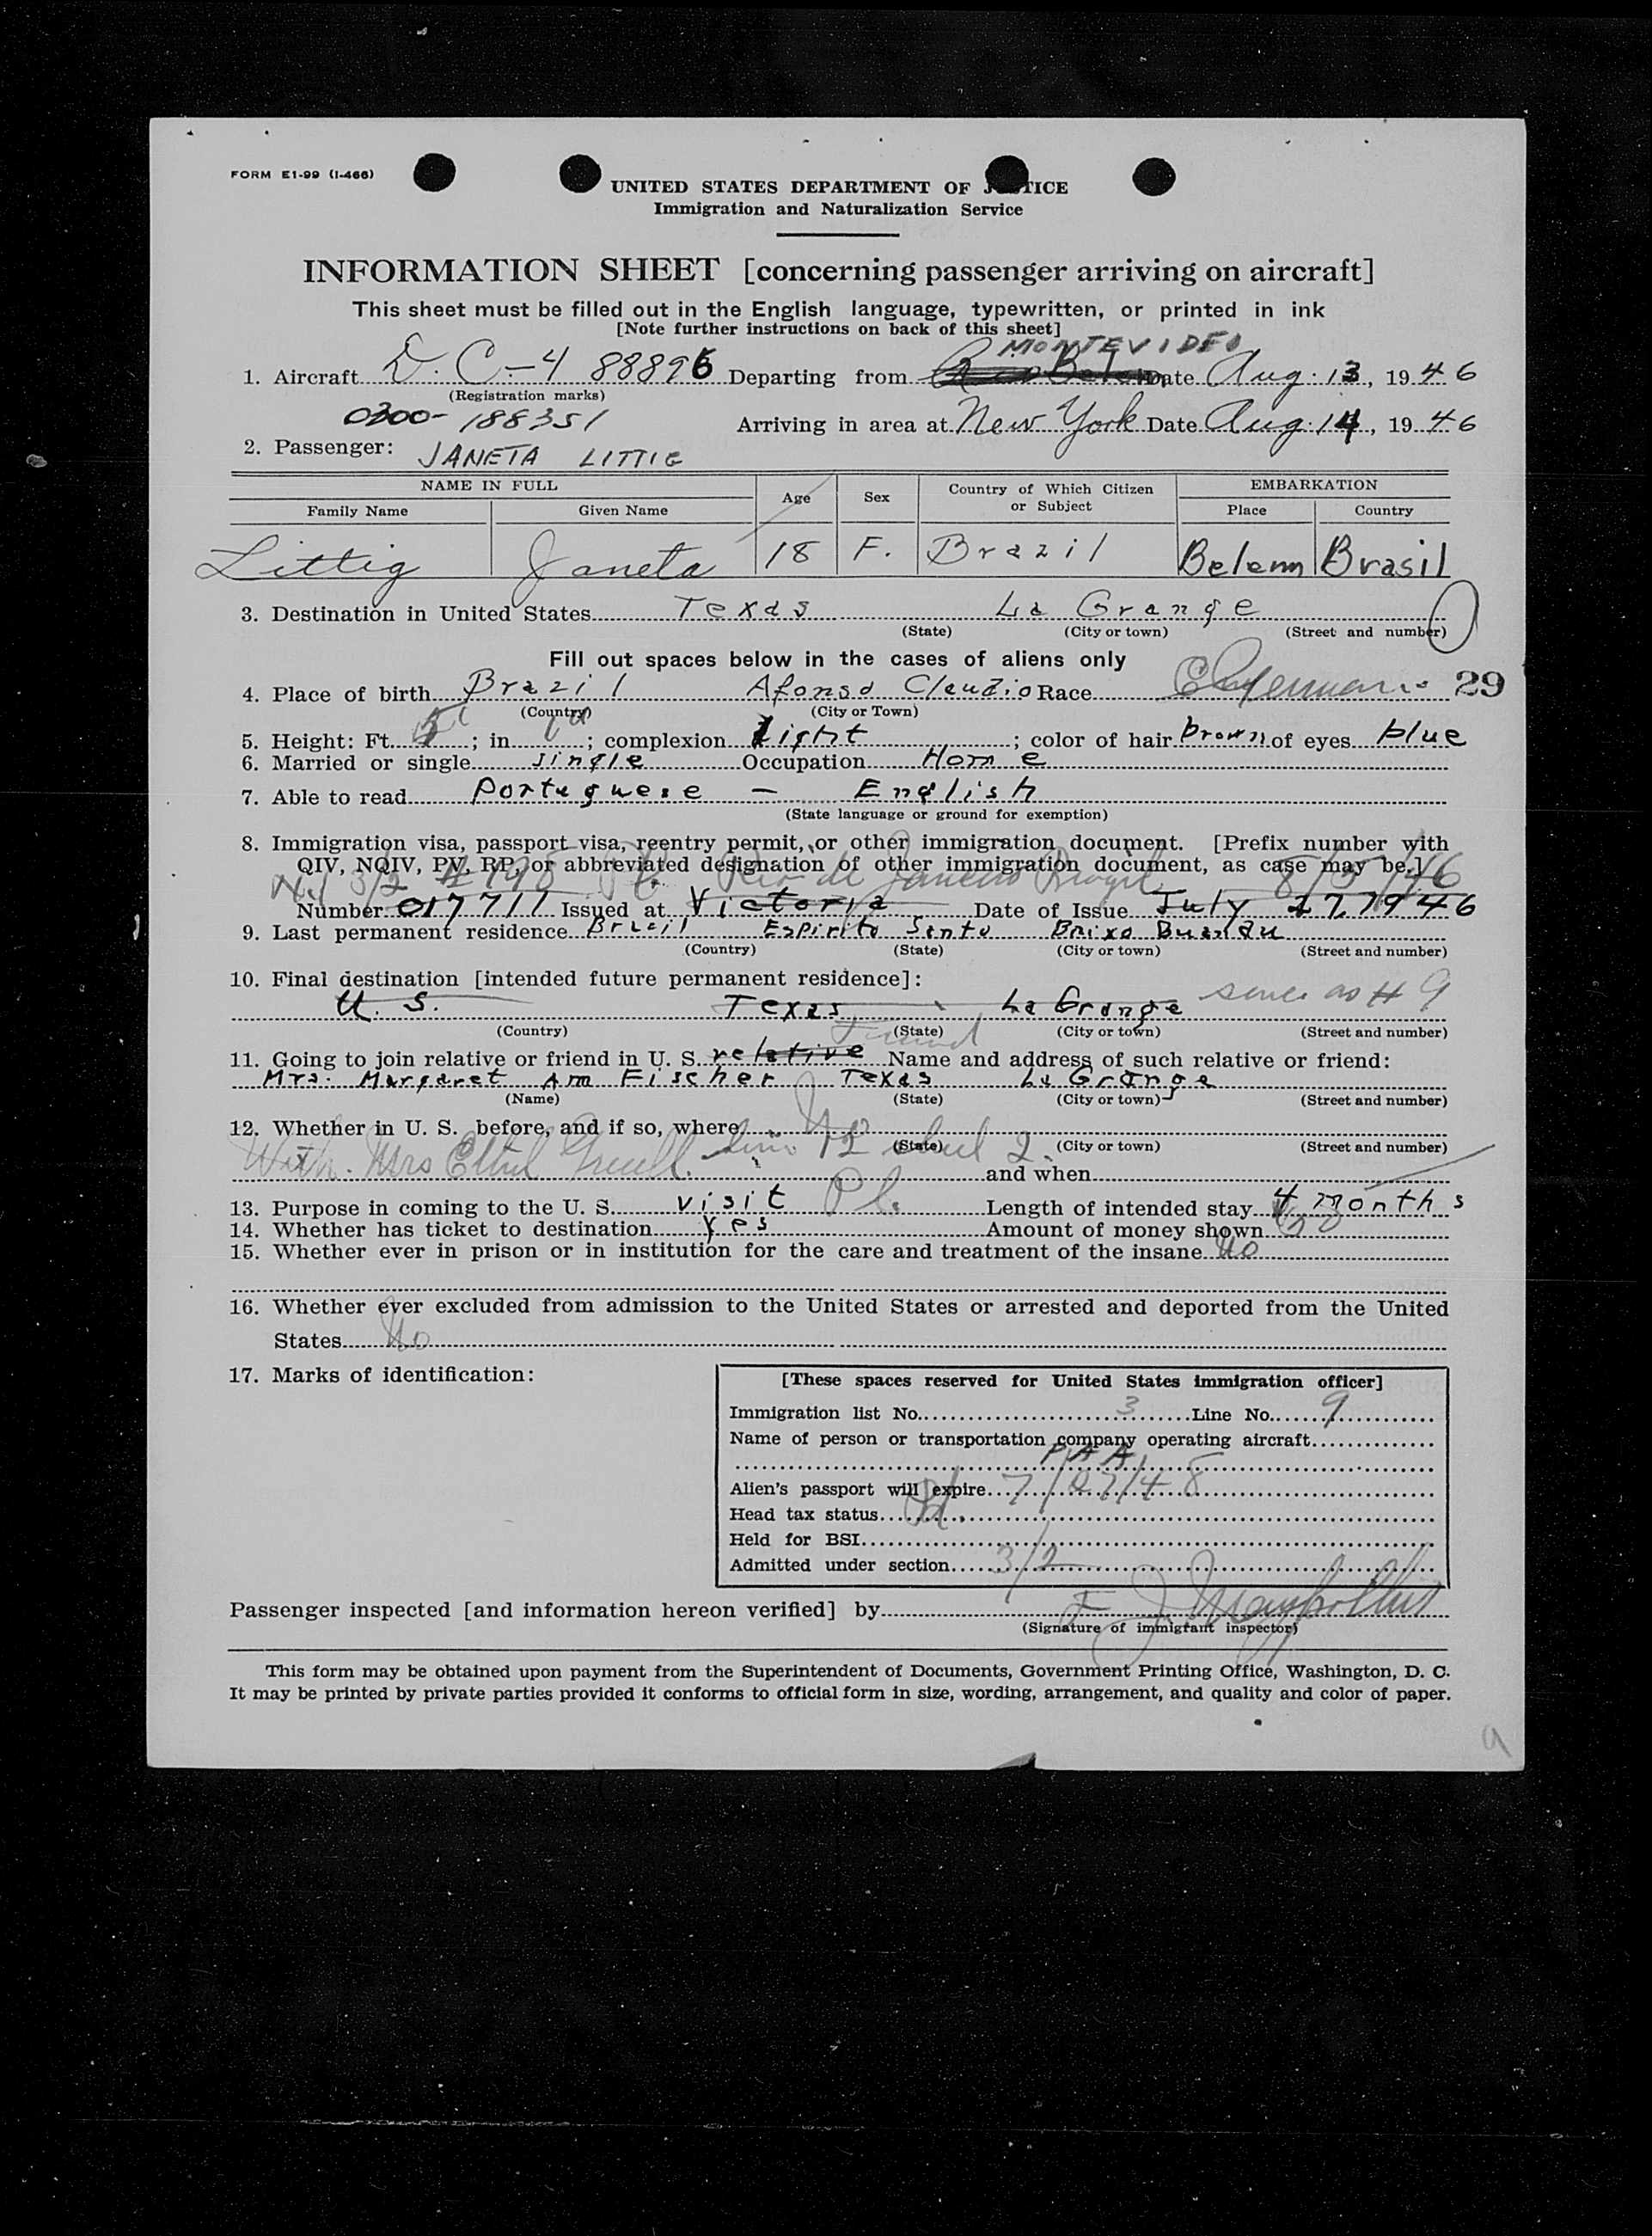 FORM E1-99 (I-466)
UNITED STATES DEPARTMENT OF JUSTICE
Immigration and Naturalization Service
INFORMATION SHEET [concerning passenger arriving on aircraft]
This sheet must be filled out in the English language, typewritten, or printed in ink
[Note further instructions on back of this sheet]
MONTEVIDEO
1. Aircraft D. C.-4 88896 Departing from Rio Belem Date Aug. 13, 1946
(Registration marks)
0300-188351 Arriving in area at New York Date Aug. 14, 1946
2. Passenger: JANETA LITTIG
NAME IN FULL Age Sex Country of Which Citizen or Subject EMBARKATION
Family Name Given Name Place Country
Littig Janeta 18 F. Brazil Belem Brasil
3. Destination in United States Texas La Grange
(State) (City or town) (Street and number)
Fill out spaces below in the cases of aliens only
4. Place of birth Brazil Afonso Claudio Race German 29
(Country) (City or Town)
5. Height: Ft. 5; in. ; complexion Light; color of hair brown of eyes blue
6. Married or single single Occupation Home
7. Able to read Portuguese — English
(State language or ground for exemption)
8. Immigration visa, passport visa, reentry permit, or other immigration document. [Prefix number with
QIV, NQIV, PV, RP, or abbreviated designation of other immigration document, as case may be.]
3/2 # 198 Rio de Janeiro Brazil 8/5/46
Number 017711 Issued at Victoria Date of Issue July 27, 1946
9. Last permanent residence Brazil Espirito Santo Baixo Guandu
(Country) (State) (City or town) (Street and number)
10. Final destination [intended future permanent residece]:
U. S. Texas La Grange same as # 9
(Country) (State) (City or town) (Street and number)
Friend
11. Going to join relative or friend in U. S. relative Name and address of such relative or friend:
Mrs. Margaret Ann Fischer Texas La Grange
(Name) (State) (City or town) (Street and number)
12. Whether in U. S. before, and if so, where No
(State) (City or town) (Street and number)
With Mrs Ethel 2
and when
13. Purpose in coming to the U. S. visit Pl. Length of intended stay 4 months
14. Whether has ticket to destination Yes Amount of money shown
15. Whether ever in prison or in institution for the care and treatment of the insane No
16. Whether ever excluded from admission to the United States or arrested and deported from the United
States No
17. Marks of identification:
[These spaces reserved for United States immigration officer]
Immigration list No. 3 Line No. 9
Name of person or transportation company operating aircraft
PAA
Alien's passport will expire 7/27/48
Head tax status Pd.
Held for BSI
Admitted under section 3/2
Passenger inspected [and information hereon verified] by
(Signature of immigrant inspector)
This form may be obtained upon payment from the Superintendent of Documents, Government Printing Office, Washington, D. C.
It may be printed by private parties provided it conforms to official form in size, wording, arrangement, and quality and color of paper.
9